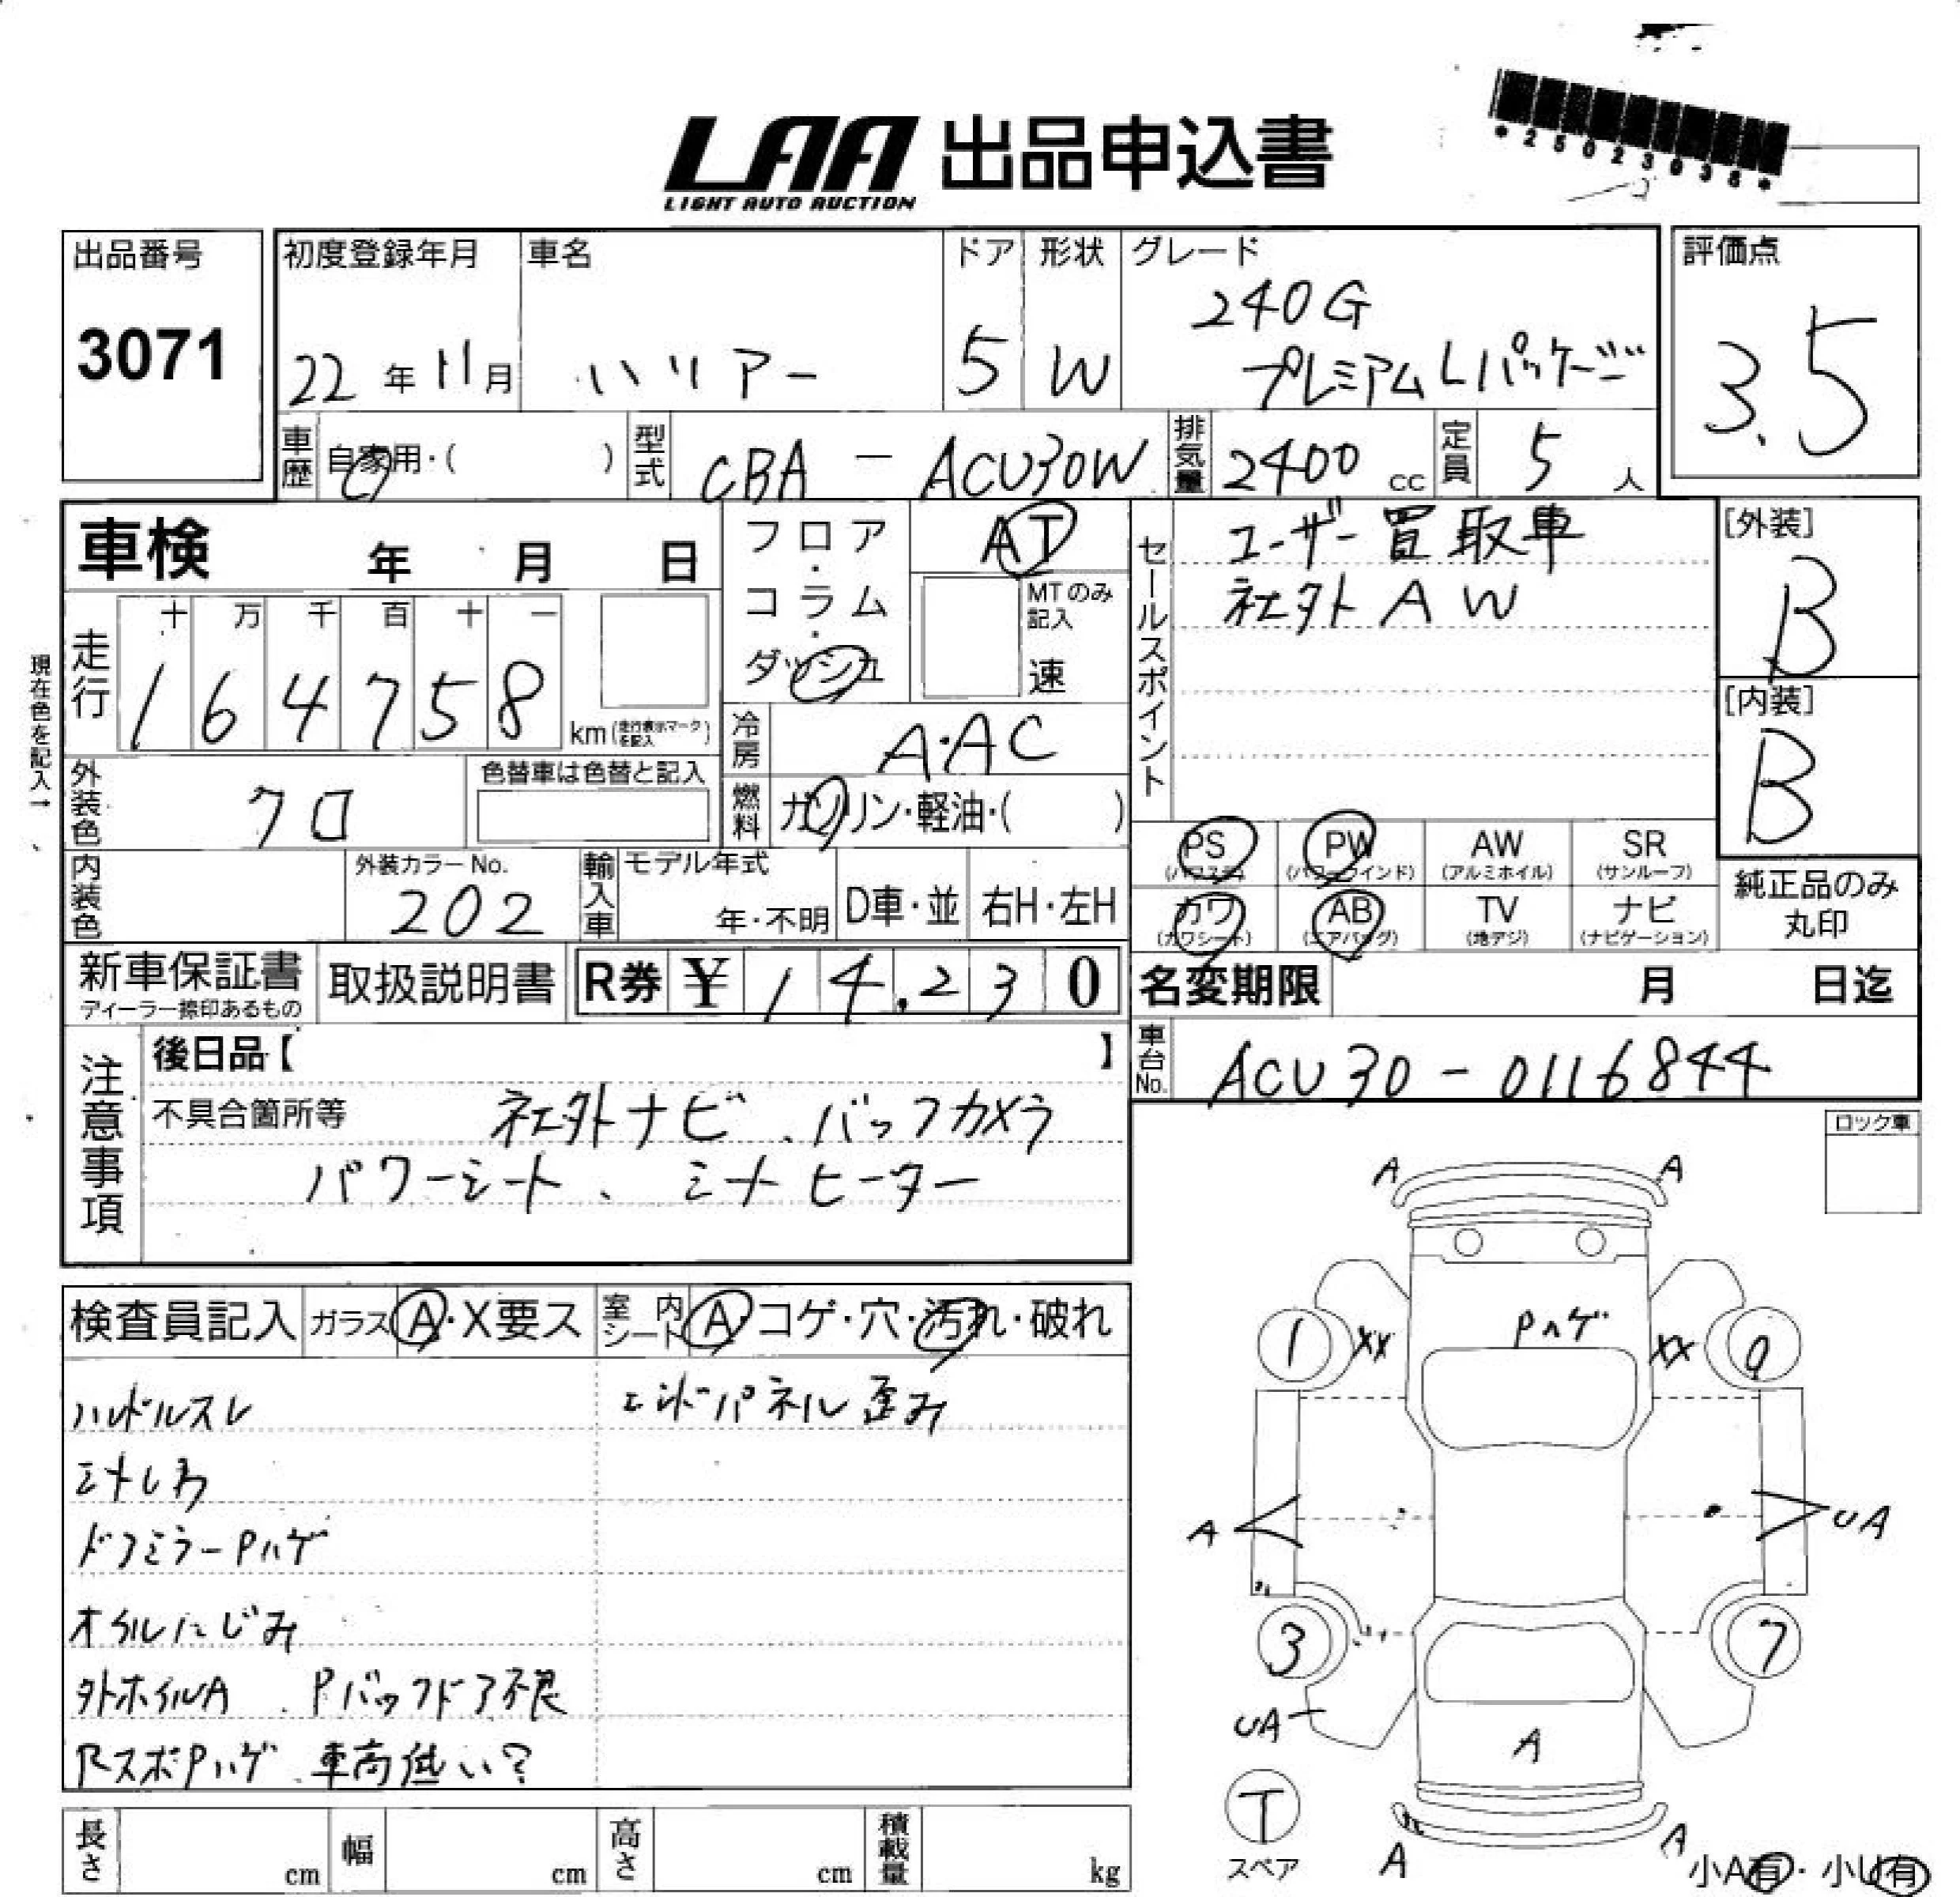 LAA 出品申込書
LIGHT AUTO AUCTION
*25023038*
出品番号
3071
初度登録年月
22年11月
車名
ハリアー
ドア
5
形状
W
グレード
240G
プレミアムLパッケージ
評価点
3.5
車歴
自家用・( )
型式
CBA - ACU30W
排気量
2400 cc
定員
5 人
車検 年 月 日
フロア・コラム・ダッシュ
AT
MTのみ記入
速
セールスポイント
ユーザー買取車
社外AW
[外装]
B
[内装]
B
現在色を記入→
走行
十 万 千 百 十 一
1 6 4 7 5 8
km (走行表示マークを記入)
冷房
A・AC
外装色
クロ
色替車は色替と記入
燃料
ガソリン・軽油・( )
PS
(パワステ)
PW
(パワーウインド)
AW
(アルミホイル)
SR
(サンルーフ)
カワ
(カワシート)
AB
(エアバッグ)
TV
(地デジ)
ナビ
(ナビゲーション)
純正品のみ
丸印
内装色
外装カラーNo.
202
輸入車
モデル年式
年・不明
D車・並
右H・左H
新車保証書
ディーラー捺印あるもの
取扱説明書
R券 ¥ 14,230
名変期限 月 日迄
車台No.
ACU30-0116844
注意事項
後日品【 】
不具合箇所等
社外ナビ、バックカメラ
パワーシート、シートヒーター
ロック車
検査員記入
ガラス A・X要ス
室内シート A コゲ・穴・汚れ・破れ
ハンドルスレ
エンドパネル歪み
シートしわ
ドアミラーPハゲ
オイルにじみ
外ホイルA、Pバックドア不良
RスポPハゲ、車高低い?
A
A
Pハゲ
1
XX
XX
9
A
UA
3
7
UA
A
T
スペア
A
A
小A有・小U有
長さ cm
幅 cm
高さ cm
積載量 kg